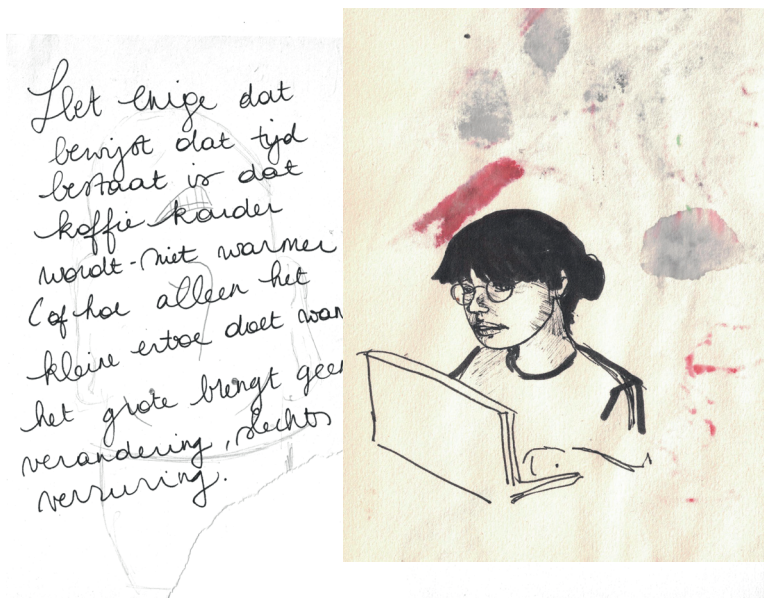 Het enige dat
bewijst dat tijd
bestaat is dat
koffie kouder
wordt - niet warmer
(of hoe alleen het
kleine ertoe doet wan
het grote brengt geen
verandering, slechts
verzuring.